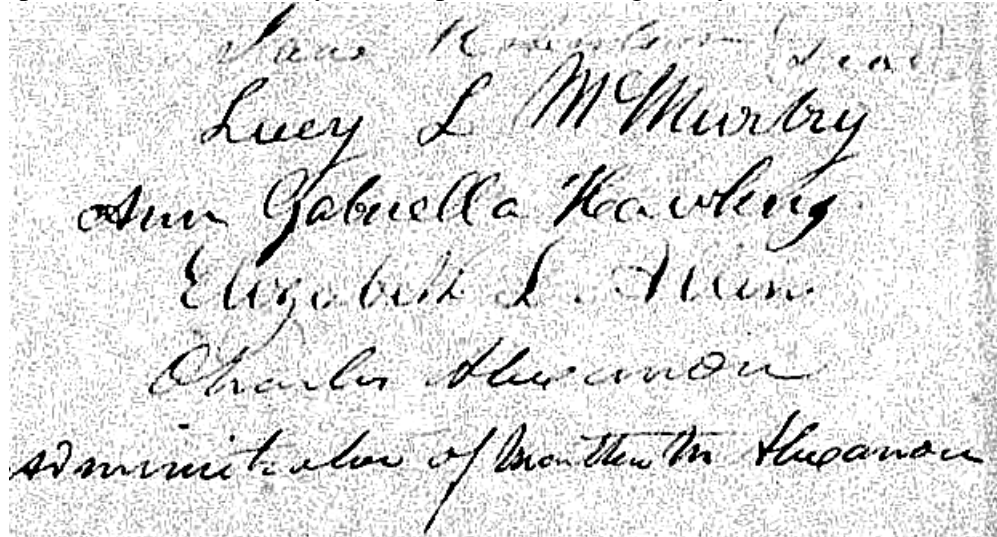 Jane Robertson (Seal)
Lucy L McMurtry
Ann Gabriella Hawkins
Elizabeth L. Allen
Charles Alexander
administrator of Martha M Alexander